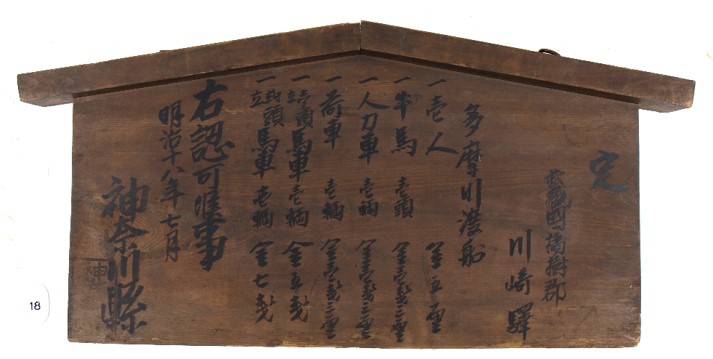 定
武蔵國橘樹郡
川崎驛
多摩川渡船
一壱人 金五厘
一牛馬 壱頭 金壱銭厘
一人力車 壱輌 金壱銭厘
一荷車 壱輌 金壱銭厘
一壱頭馬車 壱輌 金五銭
一頭馬車 壱輌 金七銭
右認可候事
明治十八年七月
神奈川縣
18